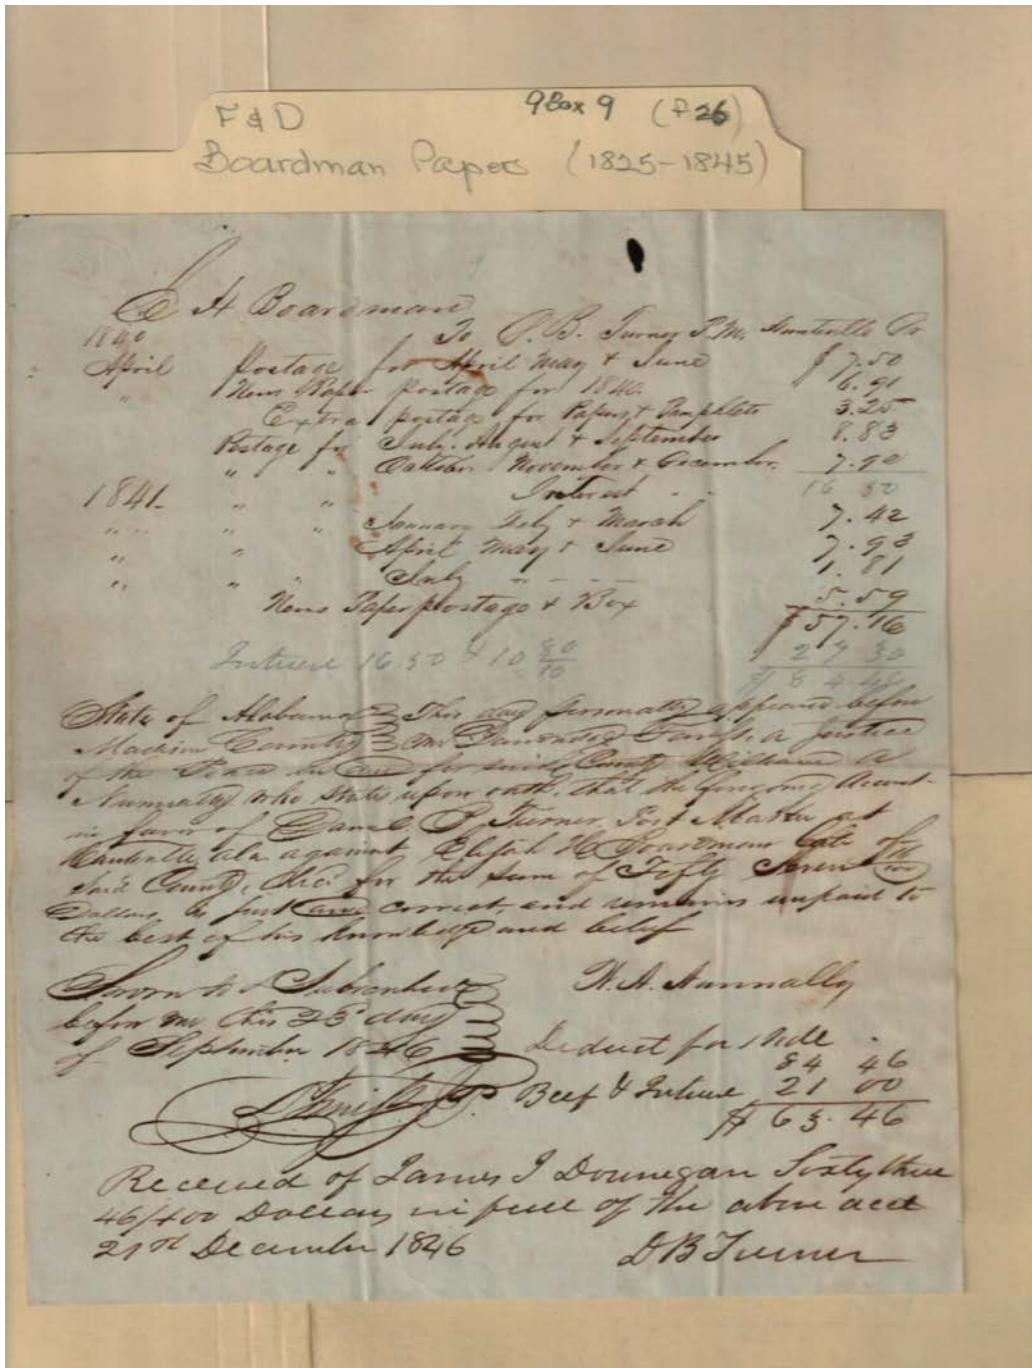 F & D 9 Box 9 (f 26)
Boardman Papers (1825-1845)
E H Boardman
1840 To D. B. Turner P.M. Huntsville Dr
April Postage for April May & June $ 7.50
" News Paper postage for 1840. 6.91
Extra postage for Papers & Pamphlets 3.25
Postage for July. August & September 8.83
" " October November & December. 7.92
Interest - - 16 50
1841- " " January Feby & March 7.42
" " " " April May & June 7.93
" " " July - - - - 1.81
News Paper postage & Box 5.59
$57.16
Interest 16.50 & 10 80/10 27 30
$ 84.46
State of Alabama } This day personally appeared before
Madison County } me a Justice
of the Peace in and for said County William A
Nunnally who states upon oath, that the foregoing Account-
in favor of Daniel B. Turner Post Master at
Huntsville Ala. against Elijah H Boardman late of
said County, decd for the sum of Fifty Seven 16/100
Dollars, is just and correct, and remains unpaid to
the best of his knowledge and belief
Sworn to & Subscribed } W. A. Nunnally
before me this 23d day }
of September 1846 } Deduct for 1 Side -
84 46
Beef & Interest 21 00
$ 63.46
Received of James J Donnegan Sixty three
46/100 Dollars in full of the above acct
21st December 1846 D B Turner